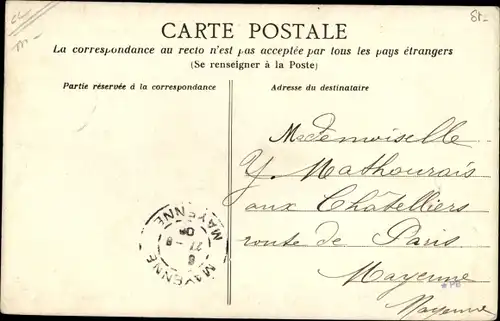 CARTE POSTALE
La correspondance au recto n'est pas acceptée par tous les pays étrangers
(Se renseigner à la Poste)
Partie réservée à la correspondance
Adresse du destinataire
Mademoiselle
Y. Mathourais
aux Châtelliers
route de Paris
Mayenne
Mayenne
MAYENNE
MAYENNE